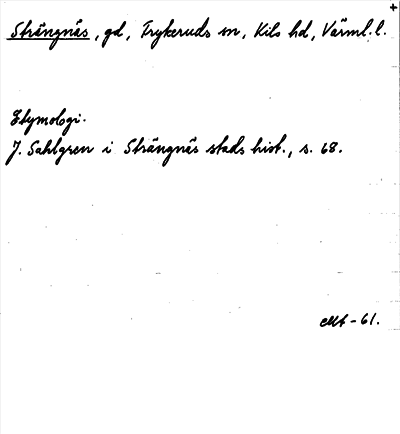 +
Strängnäs, gd, Frykeruds sn, Kils hd, Värml. l.
Etymologi.
J. Sahlgren i Strängnäs stads hist., s. 68.
-61.